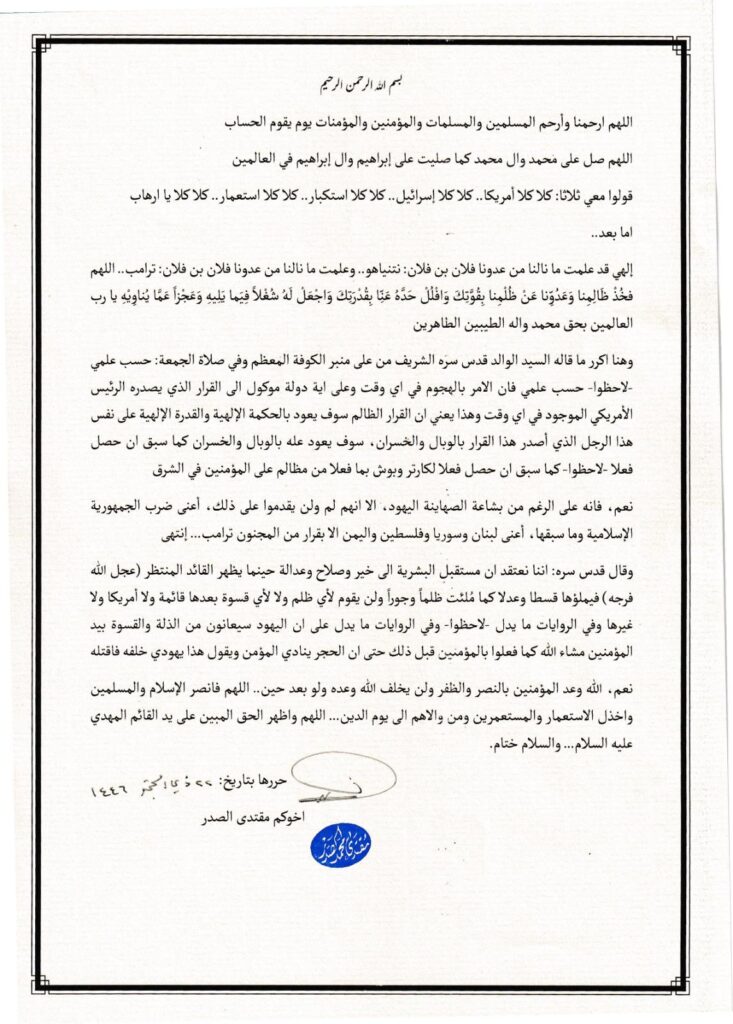 بسم الله الرحمن الرحيم
اللهم ارحمنا وأرحم المسلمين والمسلمات والمؤمنين والمؤمنات يوم يقوم الحساب
اللهم صل على محمد وال محمد كما صليت على إبراهيم وال إبراهيم في العالمين
قولوا معي ثلاثا: كلا كلا أمريكا.. كلا كلا إسرائيل.. كلا كلا استكبار.. كلا كلا استعمار.. كلا كلا يا ارهاب
اما بعد..
إلهي قد علمت ما نالنا من عدونا فلان بن فلان: نتنياهو.. وعلمت ما نالنا من عدونا فلان بن فلان: ترامب.. اللهم
فخُذْ ظَالِمِنا وَعَدُوِّنا عَنْ ظُلْمِنا بِقُوَّتِكَ وَافْلُلْ حَدَّهُ عَنّا بِقُدْرَتِكَ وَاجْعَلْ لَهُ شُغْلاً فِيَما يَلِيهِ وَعَجْزاً عَمَّا يُناوِيْهِ يا رب
العالمين بحق محمد واله الطيبين الطاهرين
وهنا اكرر ما قاله السيد الوالد قدس سرّه الشريف من على منبر الكوفة المعظم وفي صلاة الجمعة: حسب علمي
-لاحظوا- حسب علمي فان الامر بالهجوم في اي وقت وعلى اية دولة موكول الى القرار الذي يصدره الرئيس
الأمريكي الموجود في اي وقت وهذا يعني ان القرار الظالم سوف يعود بالحكمة الإلهية والقدرة الإلهية على نفس
هذا الرجل الذي أصدر هذا القرار بالوبال والخسران، سوف يعود عله بالوبال والخسران كما سبق ان حصل
فعلا -لاحظوا- كما سبق ان حصل فعلا لكارتر وبوش بما فعلا من مظالم على المؤمنين في الشرق
نعم، فانه على الرغم من بشاعة الصهاينة اليهود، الا انهم لم ولن يقدموا على ذلك، أعنى ضرب الجمهورية
الإسلامية وما سبقها، أعنى لبنان وسوريا وفلسطين واليمن الا بقرار من المجنون ترامب... إنتهى
وقال قدس سره: اننا نعتقد ان مستقبل البشرية الى خير وصلاح وعدالة حينما يظهر القائد المنتظر (عجل الله
فرجه) فيملؤها قسطا وعدلا كما مُلئت ظلماً وجوراً ولن يقوم لأي ظلم ولا لأي قسوة بعدها قائمة ولا أمريكا ولا
غيرها وفي الروايات ما يدل -لاحظوا- وفي الروايات ما يدل على ان اليهود سيعانون من الذلة والقسوة بيد
المؤمنين مشاء الله كما فعلوا بالمؤمنين قبل ذلك حتى ان الحجر ينادي المؤمن ويقول هذا يهودي خلفه فاقتله
نعم، الله وعد المؤمنين بالنصر والظفر ولن يخلف الله وعده ولو بعد حين.. اللهم فانصر الإسلام والمسلمين
واخذل الاستعمار والمستعمرين ومن والاهم الى يوم الدين... اللهم واظهر الحق المبين على يد القائم المهدي
عليه السلام... والسلام ختام.
حررها بتاريخ: ٢٢ ذي الحجة ١٤٤٦
اخوكم مقتدى الصدر
مقتدى محمد الصدر